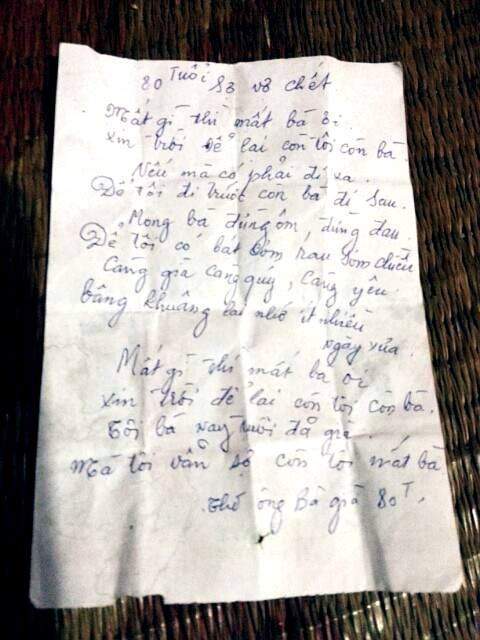 80 Tuổi Sợ vợ chết.
Mất gì thì mất bà ơi
xin trời để lại còn tôi còn bà.
Nếu mà có phải đi xa.
Để tôi đi trước còn bà đi sau.
Mong bà đừng ốm, đừng đau.
Để tôi có bát cơm rau sớm chiều
Càng già càng quý, càng yêu
bâng khuâng lại nhớ ít nhiều
ngày xưa.
Mất gì thì mất bà ơi
xin trời để lại còn tôi còn bà.
Tôi bà nay tuổi đã già
Mà tôi vẫn sợ còn tôi mất bà
Thơ ông Bà già 80T.